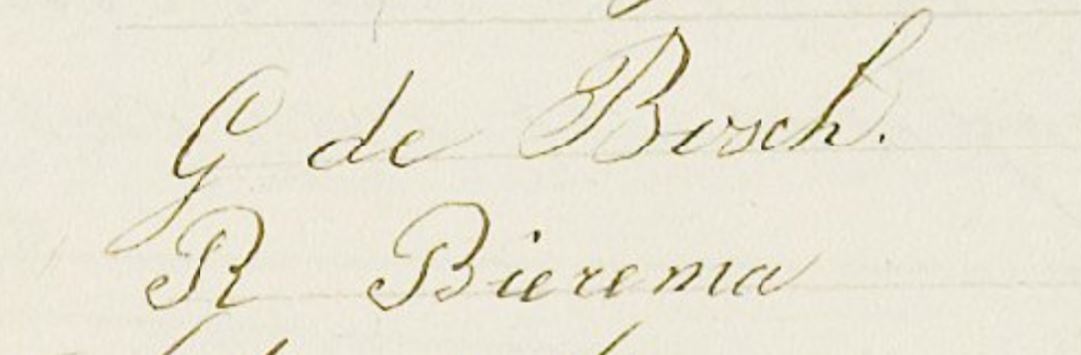 G de Bosch.
R Bierema